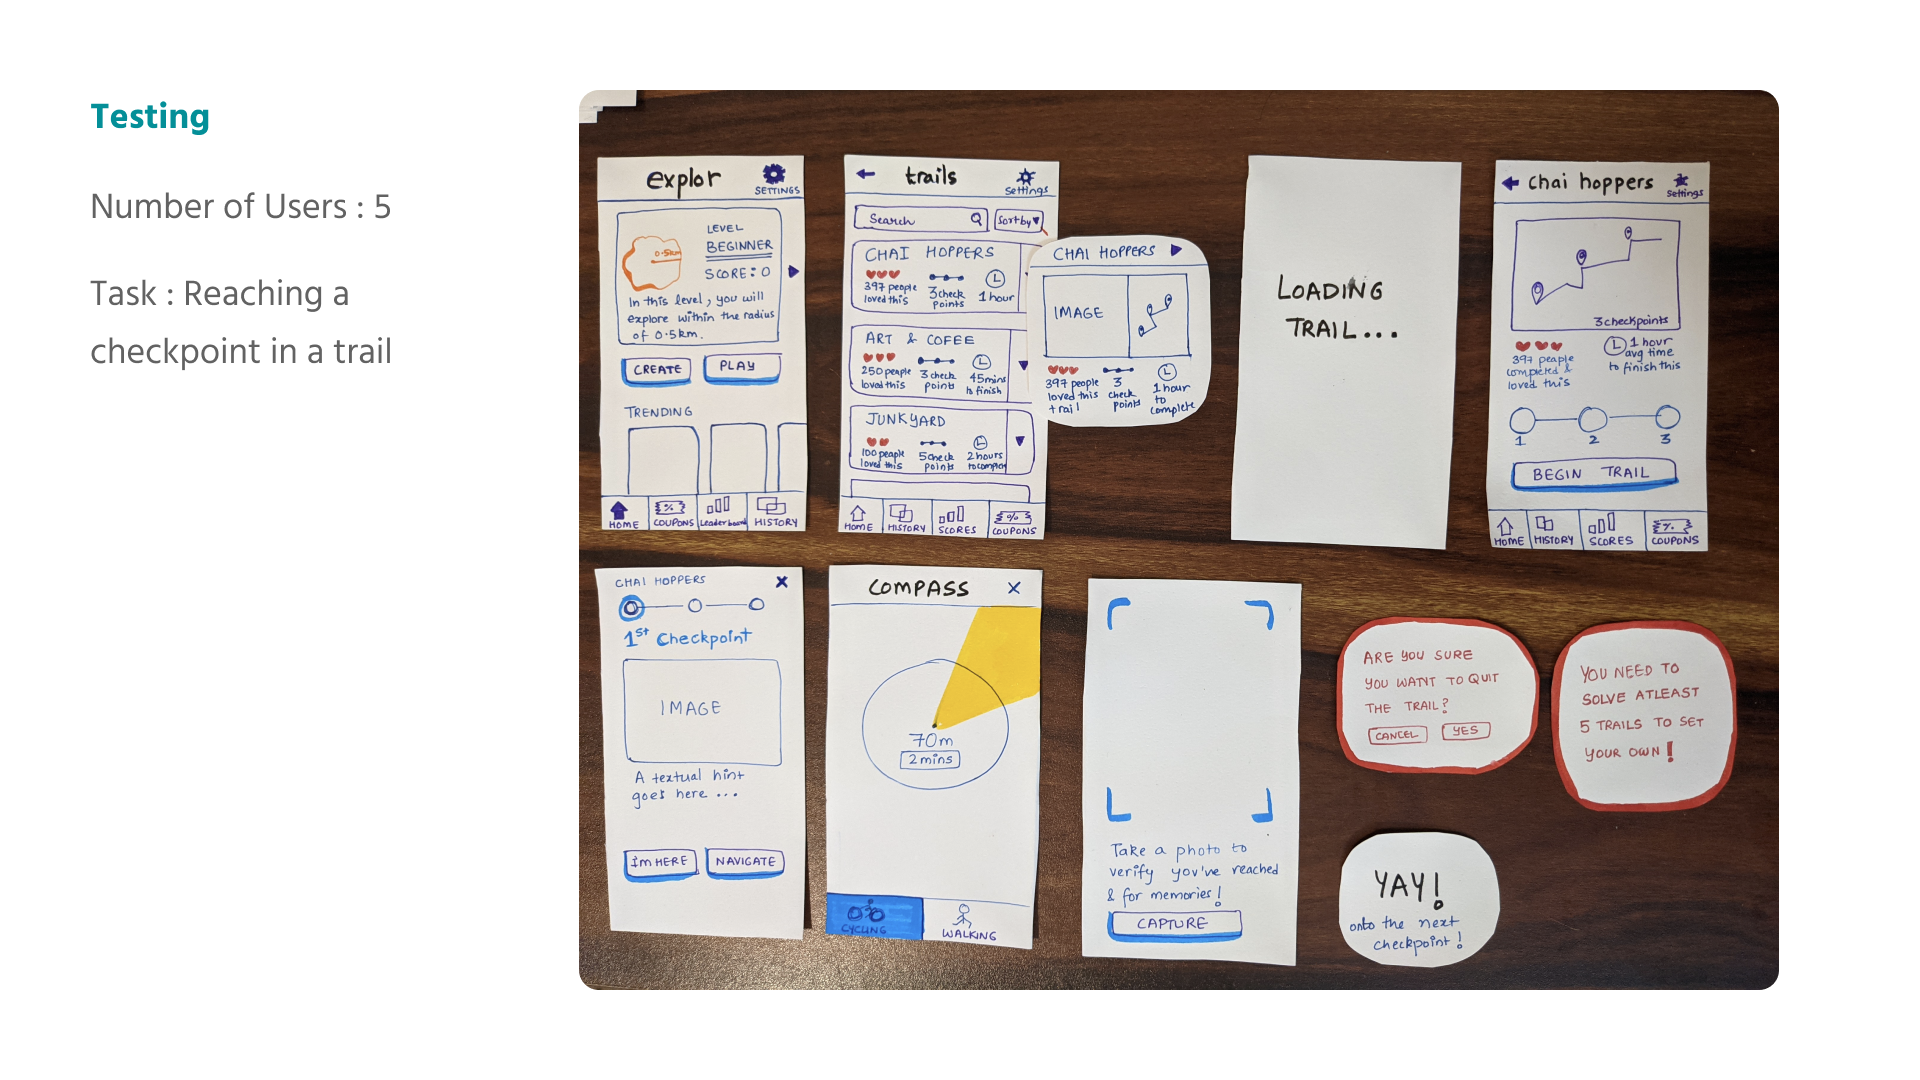 Testing
Number of Users : 5
Task : Reaching a
checkpoint in a trail
explor
SETTINGS
0.5km
LEVEL
BEGINNER
SCORE: 0
In this level, you will
explore within the radius
of 0.5km.
CREATE
PLAY
TRENDING
HOME
COUPONS
Leaderboard
HISTORY
trails
Settings
Search
Sort by
CHAI HOPPERS
397 people
loved this
3 check
points
1 hour
ART & COFEE
250 people
loved this
3 check
points
45 mins
to finish
JUNKYARD
100 people
loved this
5 check
points
2 hours
to complete
HOME
HISTORY
SCORES
% COUPONS
CHAI HOPPERS
IMAGE
397 people
loved this
trail
3
check
points
1 hour
to
complete
LOADING
TRAIL...
chai hoppers
Settings
3 checkpoints
397 people
completed &
loved this
1 hour
avg time
to finish this
1
2
3
BEGIN TRAIL
HOME
HISTORY
SCORES
COUPONS
CHAI HOPPERS
X
1st Checkpoint
IMAGE
A textual hint
goes here ...
I'm HERE
NAVIGATE
COMPASS
X
70m
2 mins
CYCLING
WALKING
Take a photo to
verify you've reached
& for memories!
CAPTURE
ARE YOU SURE
YOU WANT TO QUIT
THE TRAIL?
CANCEL
YES
YOU NEED TO
SOLVE ATLEAST
5 TRAILS TO SET
YOUR OWN!
YAY!
onto the next
checkpoint!